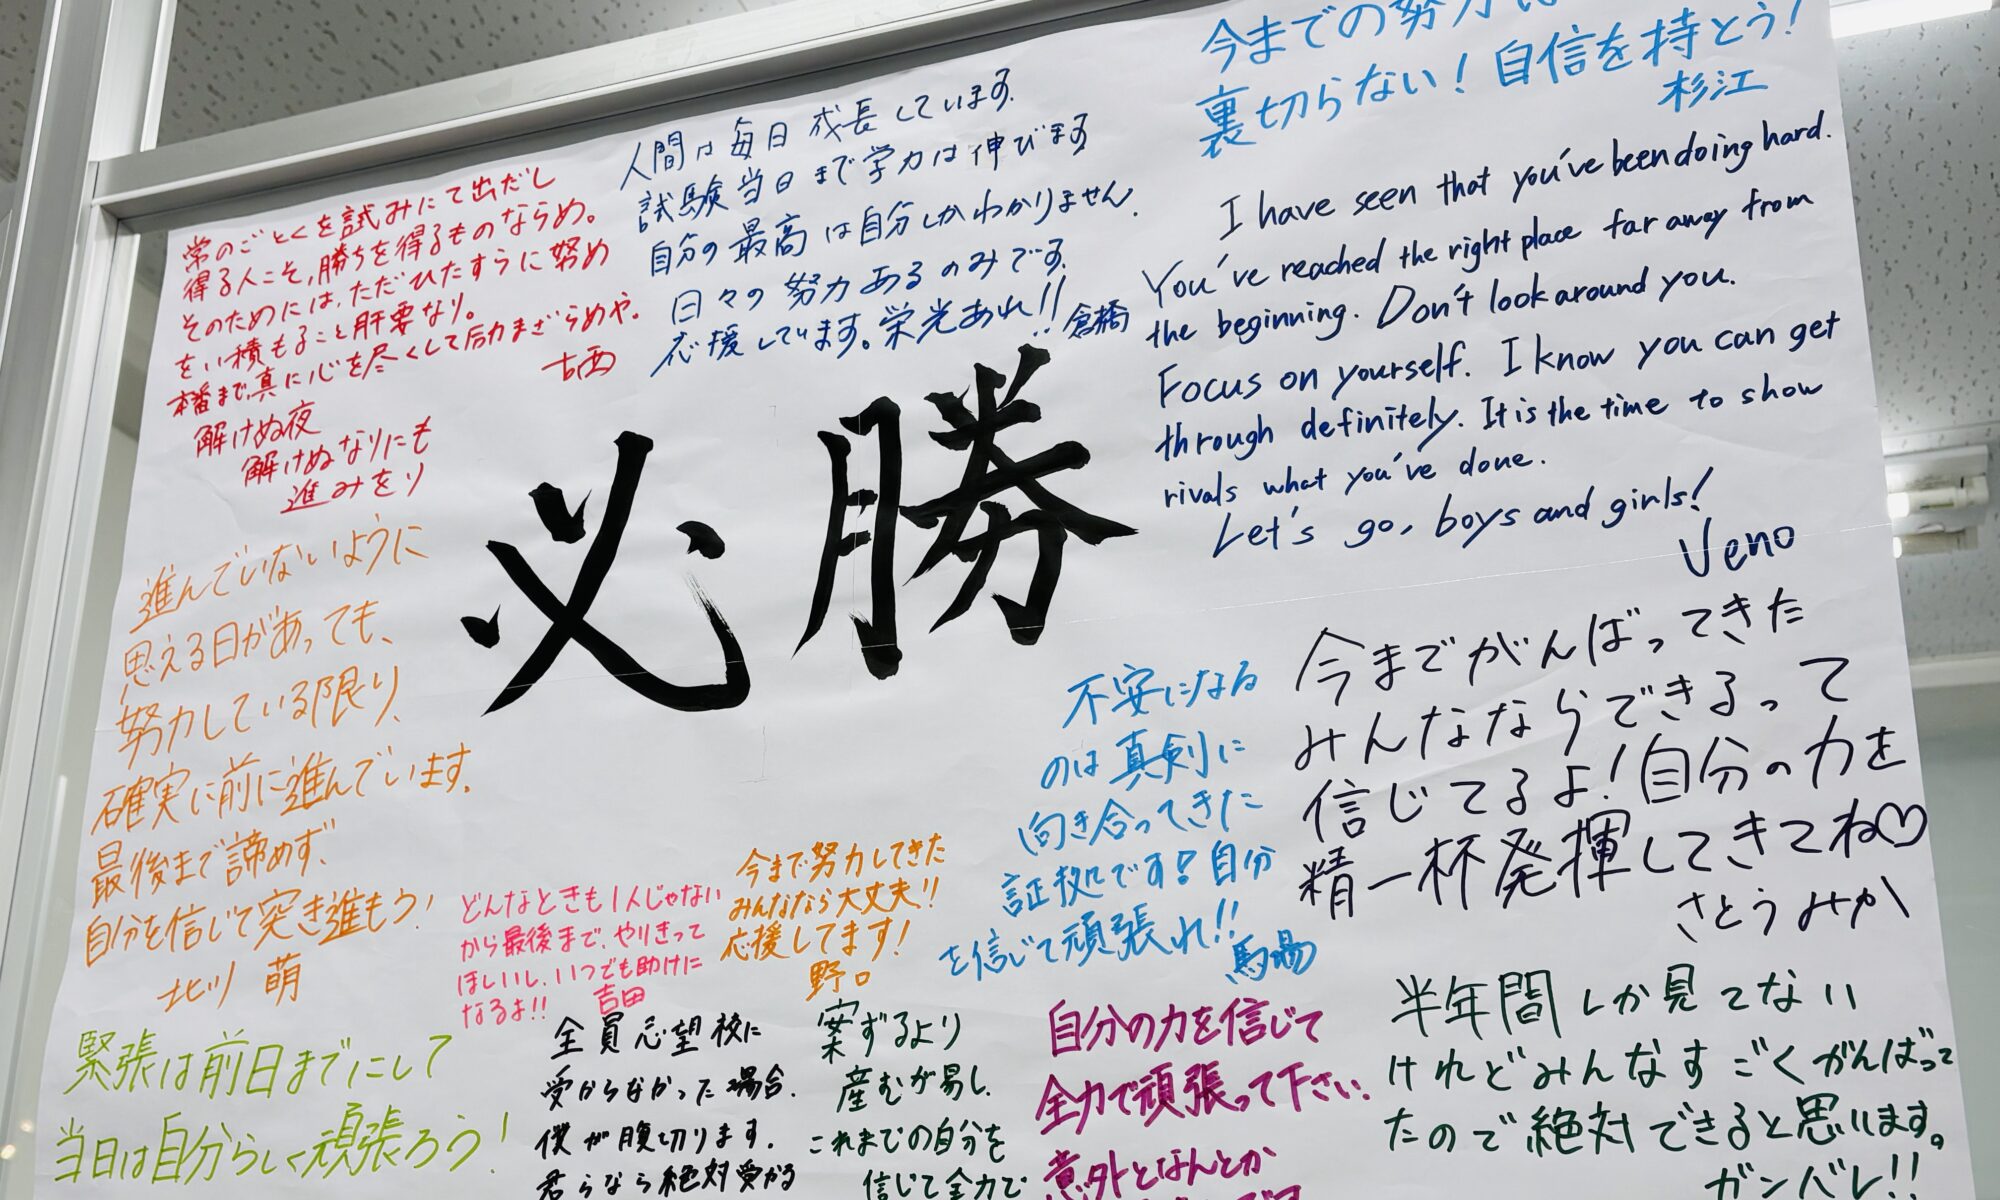 今までの努力は
裏切らない！自信を持とう！
杉江
人間は毎日成長しています.
試験当日まで学力は伸びます
自分の最高は自分しかわかりません.
日々の努力あるのみです.
応援しています。栄光あれ!!
倉橋
常のごとくを試みにて出だし
得る人こそ,勝ちを得るものならめ。
そのためには,ただひたすらに努め
をい積もること肝要なり。
本番まで,真に心を尽くして励まざらめや.
古西
解けぬ夜
解けぬなりにも
進みをり
I have seen that you've been doing hard.
You've reached the right place far away from
the beginning. Don't look around you.
Focus on yourself. I know you can get
through definitely. It is the time to show
rivals what you've done.
Let's go, boys and girls!
Ueno
必勝
進んでいないように
思える日があっても、
努力している限り、
確実に前に進んでいます.
最後まで諦めず、
自分を信じて突き進もう！
北川 萌
今までがんばってきた
みんなならできるって
信じてるよ！自分の力を
精一杯発揮してきてね♡
さとうみか
不安になる
のは真剣に
向き合ってきた
証拠です！自分
を信じて頑張れ!!
馬場
今まで努力してきた
みんななら大丈夫!!
応援してます！
野口
どんなときも1人じゃない
から最後まで、やりきって
ほしいし、いつでも助けに
なるよ!!
吉田
緊張は前日までにして
当日は自分らしく頑張ろう！
全員志望校に
受からなかった場合.
僕が腹切ります.
君らなら絶対受かる
案ずるより
産むが易し.
これまでの自分を
信じて全力で
自分の力を信じて
全力で頑張って下さい.
意外となんとか
半年間しか見てない
けれどみんなすごくがんばって
たので絶対できると思います。
ガンバレ!!